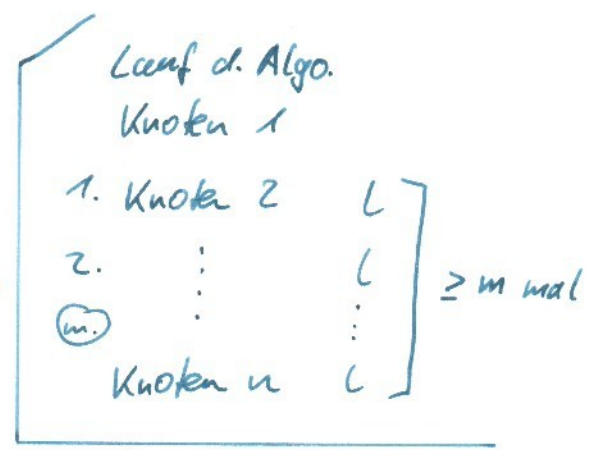 Lauf d. Algo.
Knoten 1
1. Knoten 2 l
2. ⋮ l
≥ m mal
m. ⋮ ⋮
Knoten n l